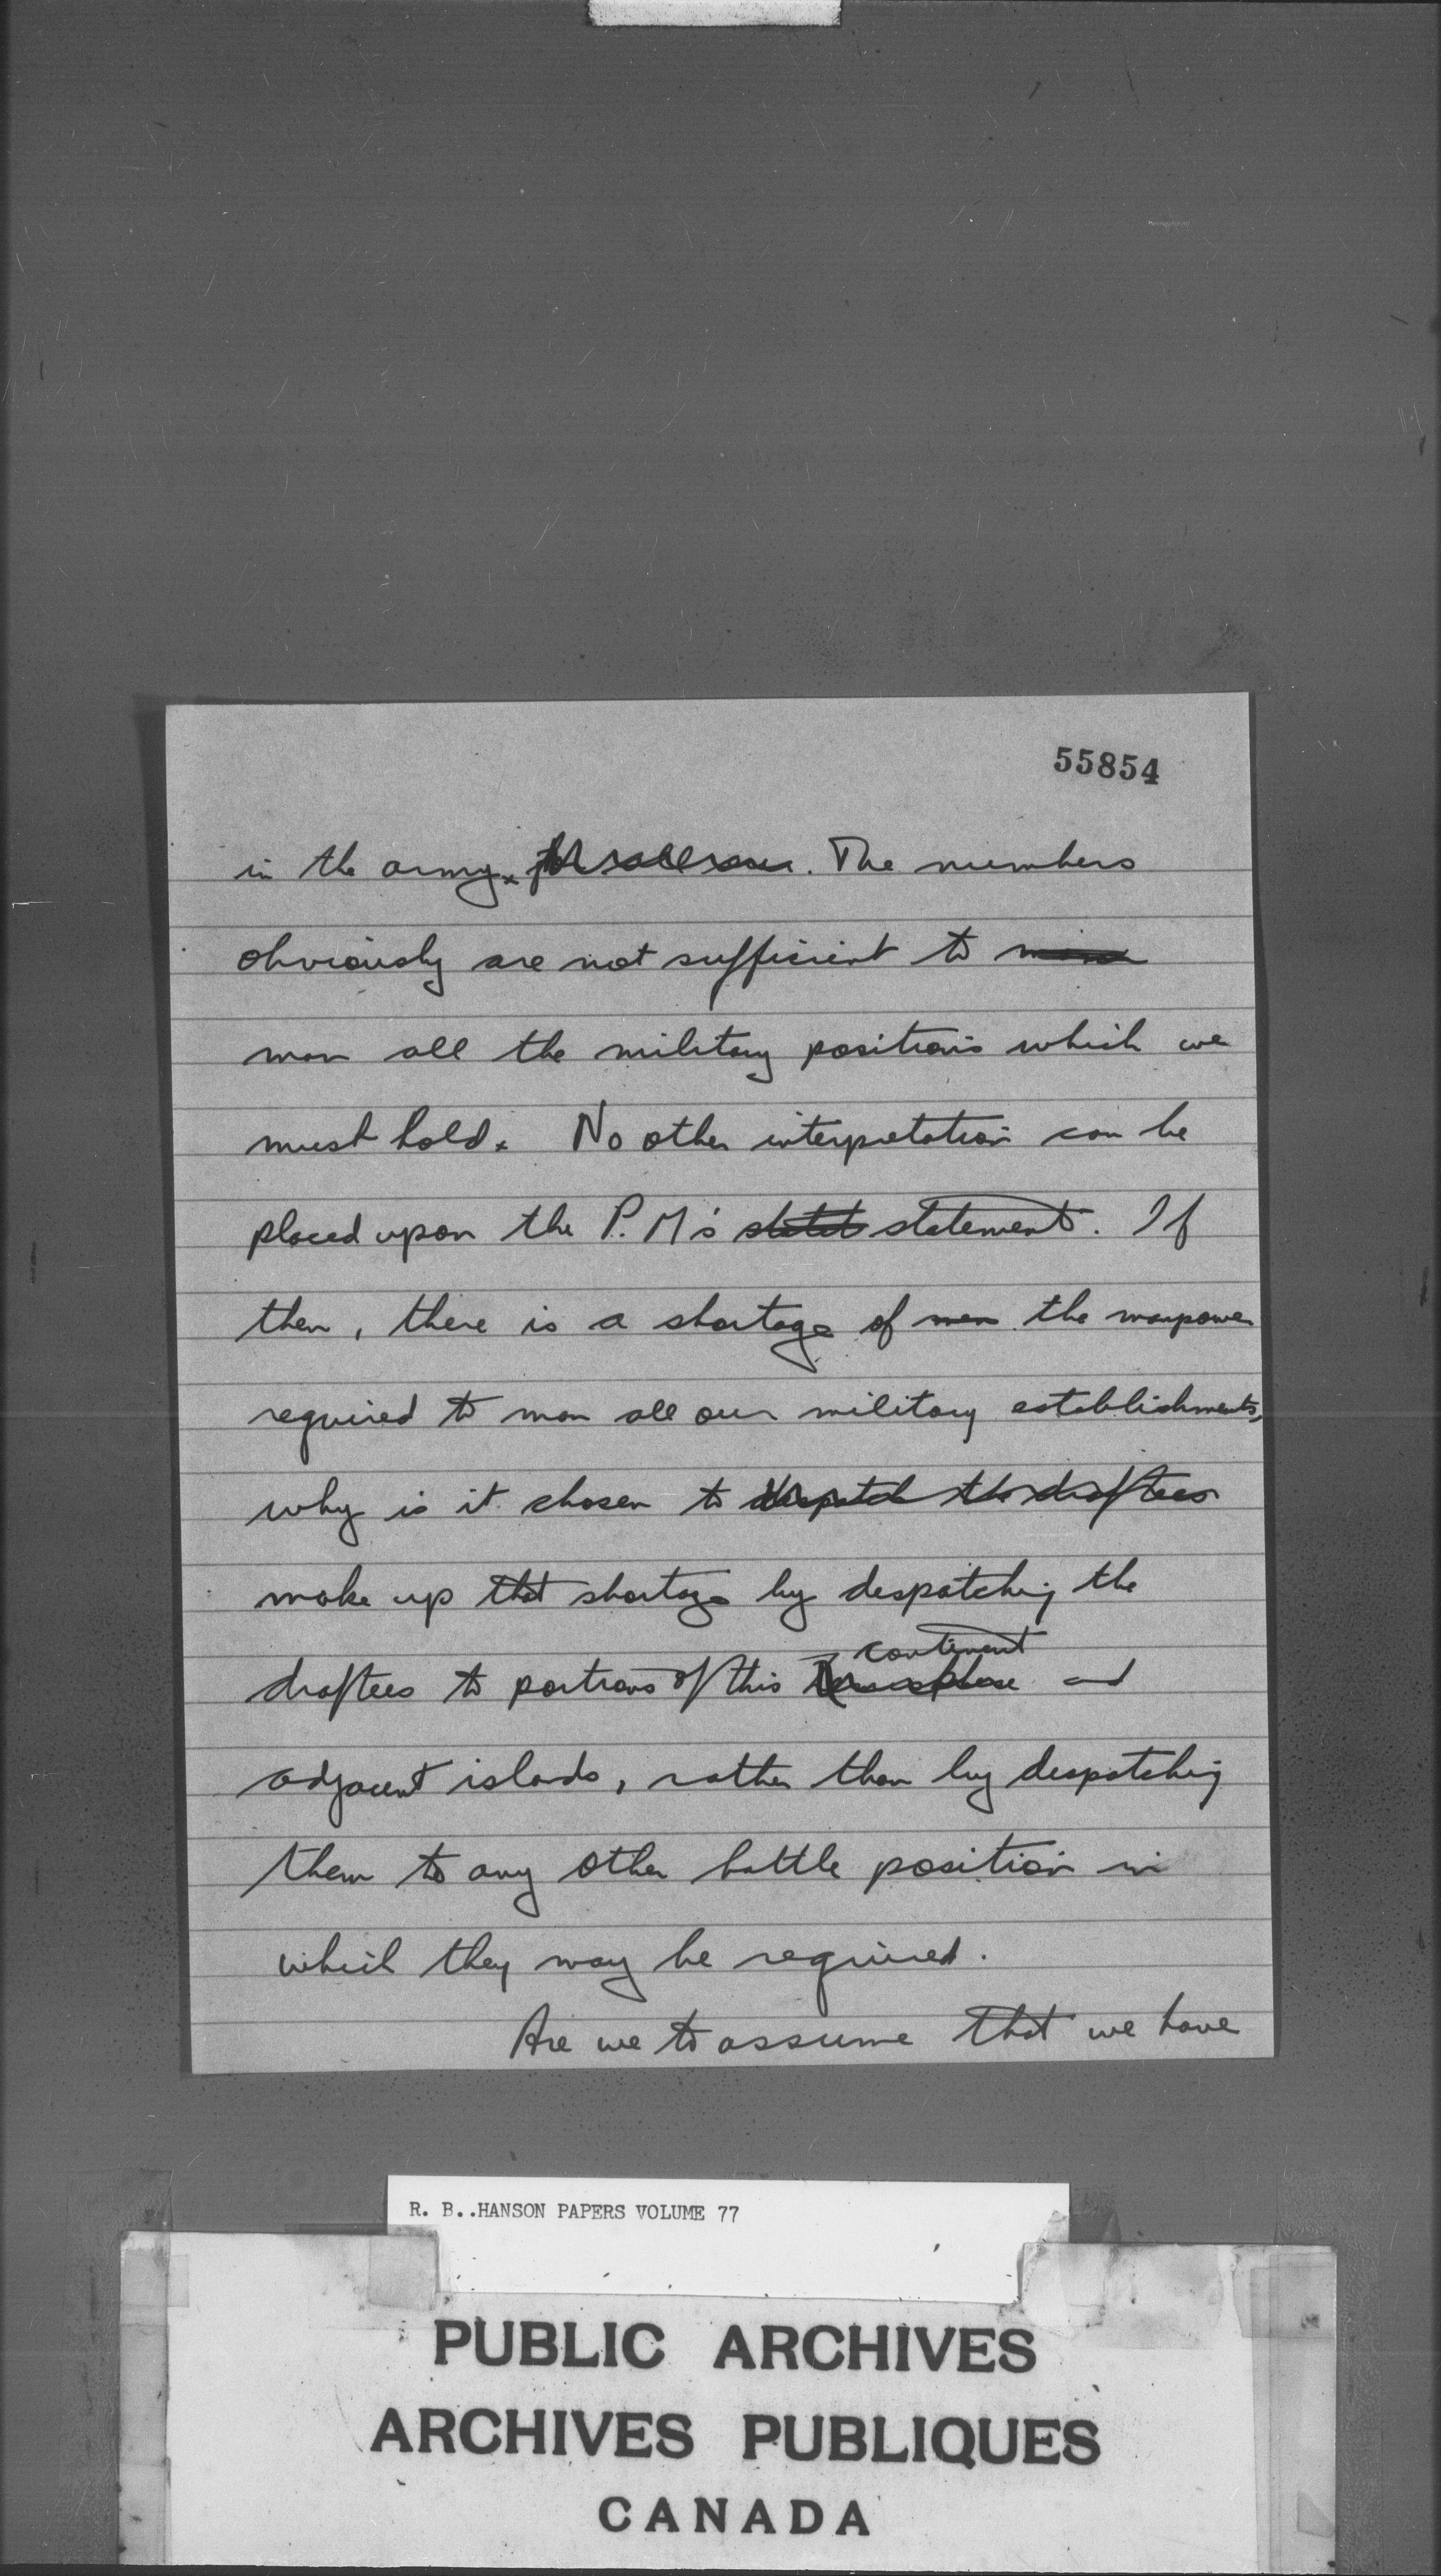 55854
in the army. The numbers
obviously are not sufficient to
man all the military positions which we
must hold. No other interpretation can be
placed upon the P.M's statement. If
then, there is a shortage of men the manpower
required to man all our military establishments,
why is it chosen to despatch the draftees
make up that shortage by despatching the
continent
draftees to portions of this hemisphere and
adjacent islands, rather than by despatching
them to any other battle position in
which they may be required.
Are we to assume that we have
R. B..HANSON PAPERS VOLUME 77
PUBLIC ARCHIVES
ARCHIVES PUBLIQUES
CANADA